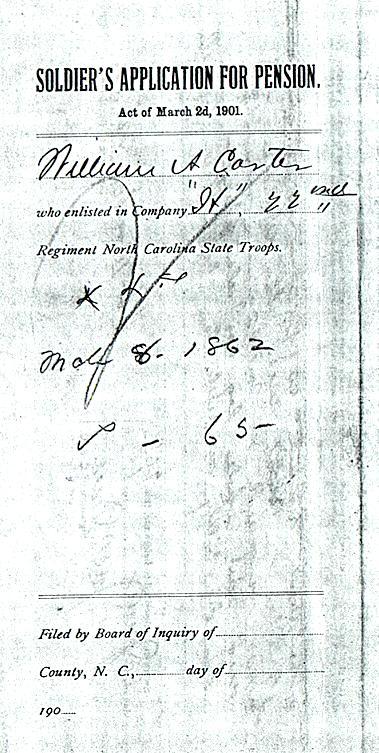 SOLDIER'S APPLICATION FOR PENSION.
Act of March 2d, 1901.
William A Carter
who enlisted in Company "H", 22 nd
Regiment North Carolina State Troops.
4th
Mch 8- 1862
65
Filed by Board of Inquiry of
County, N. C., day of
190